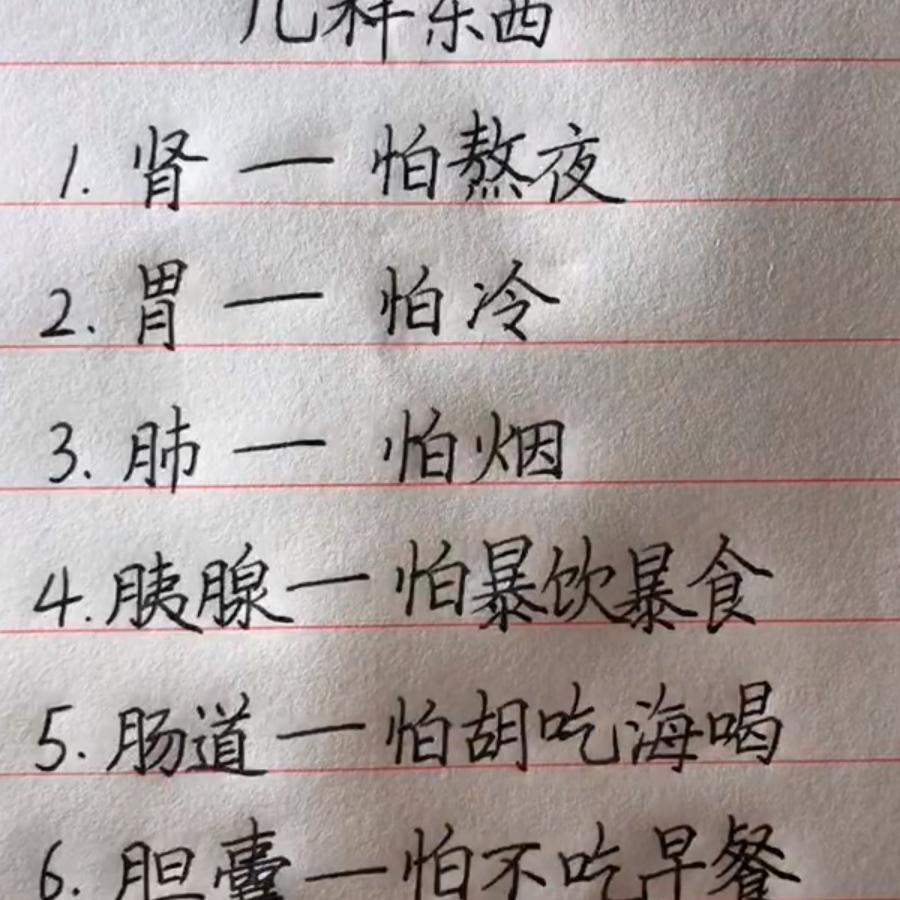 几种东西
1. 肾 — 怕熬夜
2. 胃 — 怕冷
3. 肺 — 怕烟
4. 胰腺 — 怕暴饮暴食
5. 肠道 — 怕胡吃海喝
6. 胆囊 — 怕不吃早餐